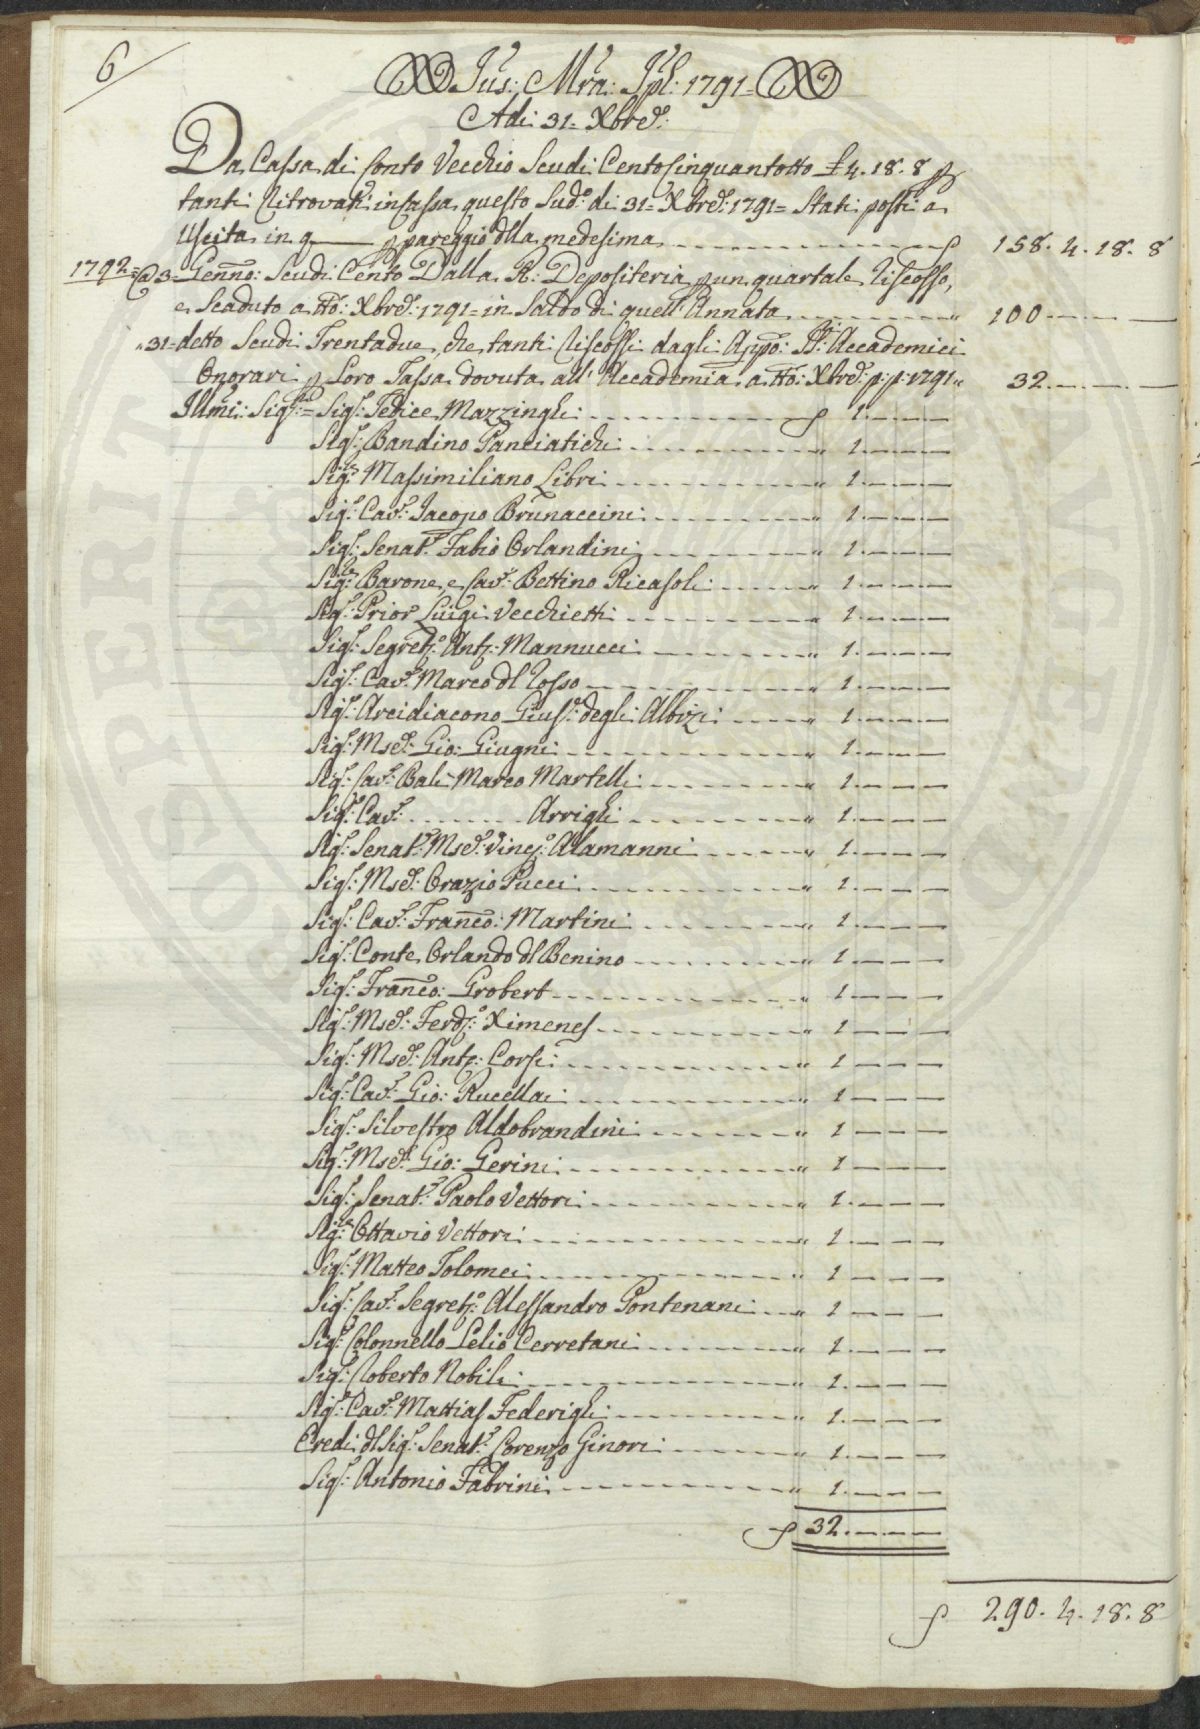 6
Jus: Mra: Jpl: 1791=
Adi 31= Xbre:
Da Cassa di Conto Vecchio Scudi Centocinquantotto £ 4. 18. 8 p
tanti ritrovati in Cassa questo sud.º dì 31= Xbre: 1791= Stati posti a
Uscita in q p pareggio dlla medesima 158. 4. 18. 8
1792= @ 3= Genno: Scudi Cento Dalla R: Depositeria p un quartale riscosso,
e Scaduto a tto: Xbre: 1791= in Saldo di quell'Annata 100
" 31= detto Scudi Trentadue, che tanti riscossi dagli Appo: SS.ri Accademici
Onorari p Loro Tassa dovuta all'Accademia a tto: Xbre: p: p: 1791 " 32
Illmi: Sigri:= Sigr: Tedice Mazzinghi 1
Sigr: Bandino Panciatichi 1
Sigr: Massimiliano Libri 1
Sigr: Cavr: Jacopo Brunaccini 1
Sigr: Senatr: Fabio Orlandini 1
Sigr: Barone, e Cavr: Bettino Ricasoli 1
Sigr: Prior Luigi Vecchietti 1
Sigr: Segretrº: Antº: Mannucci 1
Sigr: Cavr: Marco dl Rosso 1
Sigr: Arcidiacono Giusº: degli Albizi 1
Sigr: Mse: Gio: Giugni 1
Sigr: Cavr: Balì Marco Martelli 1
Sigr: Cavr: Arrighi 1
Sigr: Senatr: Mse: Vincº: Alamanni 1
Sigr: Mse: Orazio Pucci 1
Sigr: Cavr: Franco: Martini 1
Sigr: Conte Orlando dl Benino 1
Sigr: Franco: Grobert 1
Sigr: Mse: Ferdº: Ximenes 1
Sigr: Mse: Antº: Corsi 1
Sigr: Cavr: Gio: Rucellai 1
Sigr: Silvestro Aldobrandini 1
Sigr: Mse: Gio: Gerini 1
Sigr: Senatr: Paolo Vettori 1
Sigr: Ottavio Vettori 1
Sigr: Matteo Tolomei 1
Sigr: Cavr: Segretrº: Alessandro Pontenani 1
Sigr: Colonnello Lelio Cerretani 1
Sigr: Roberto Nobili 1
Sigr: Cavr: Mattias Federighi 1
Eredi dl Sigr: Senatr: Lorenzo Ginori 1
Sigr: Antonio Fabrini 1
32
290. 4. 18. 8